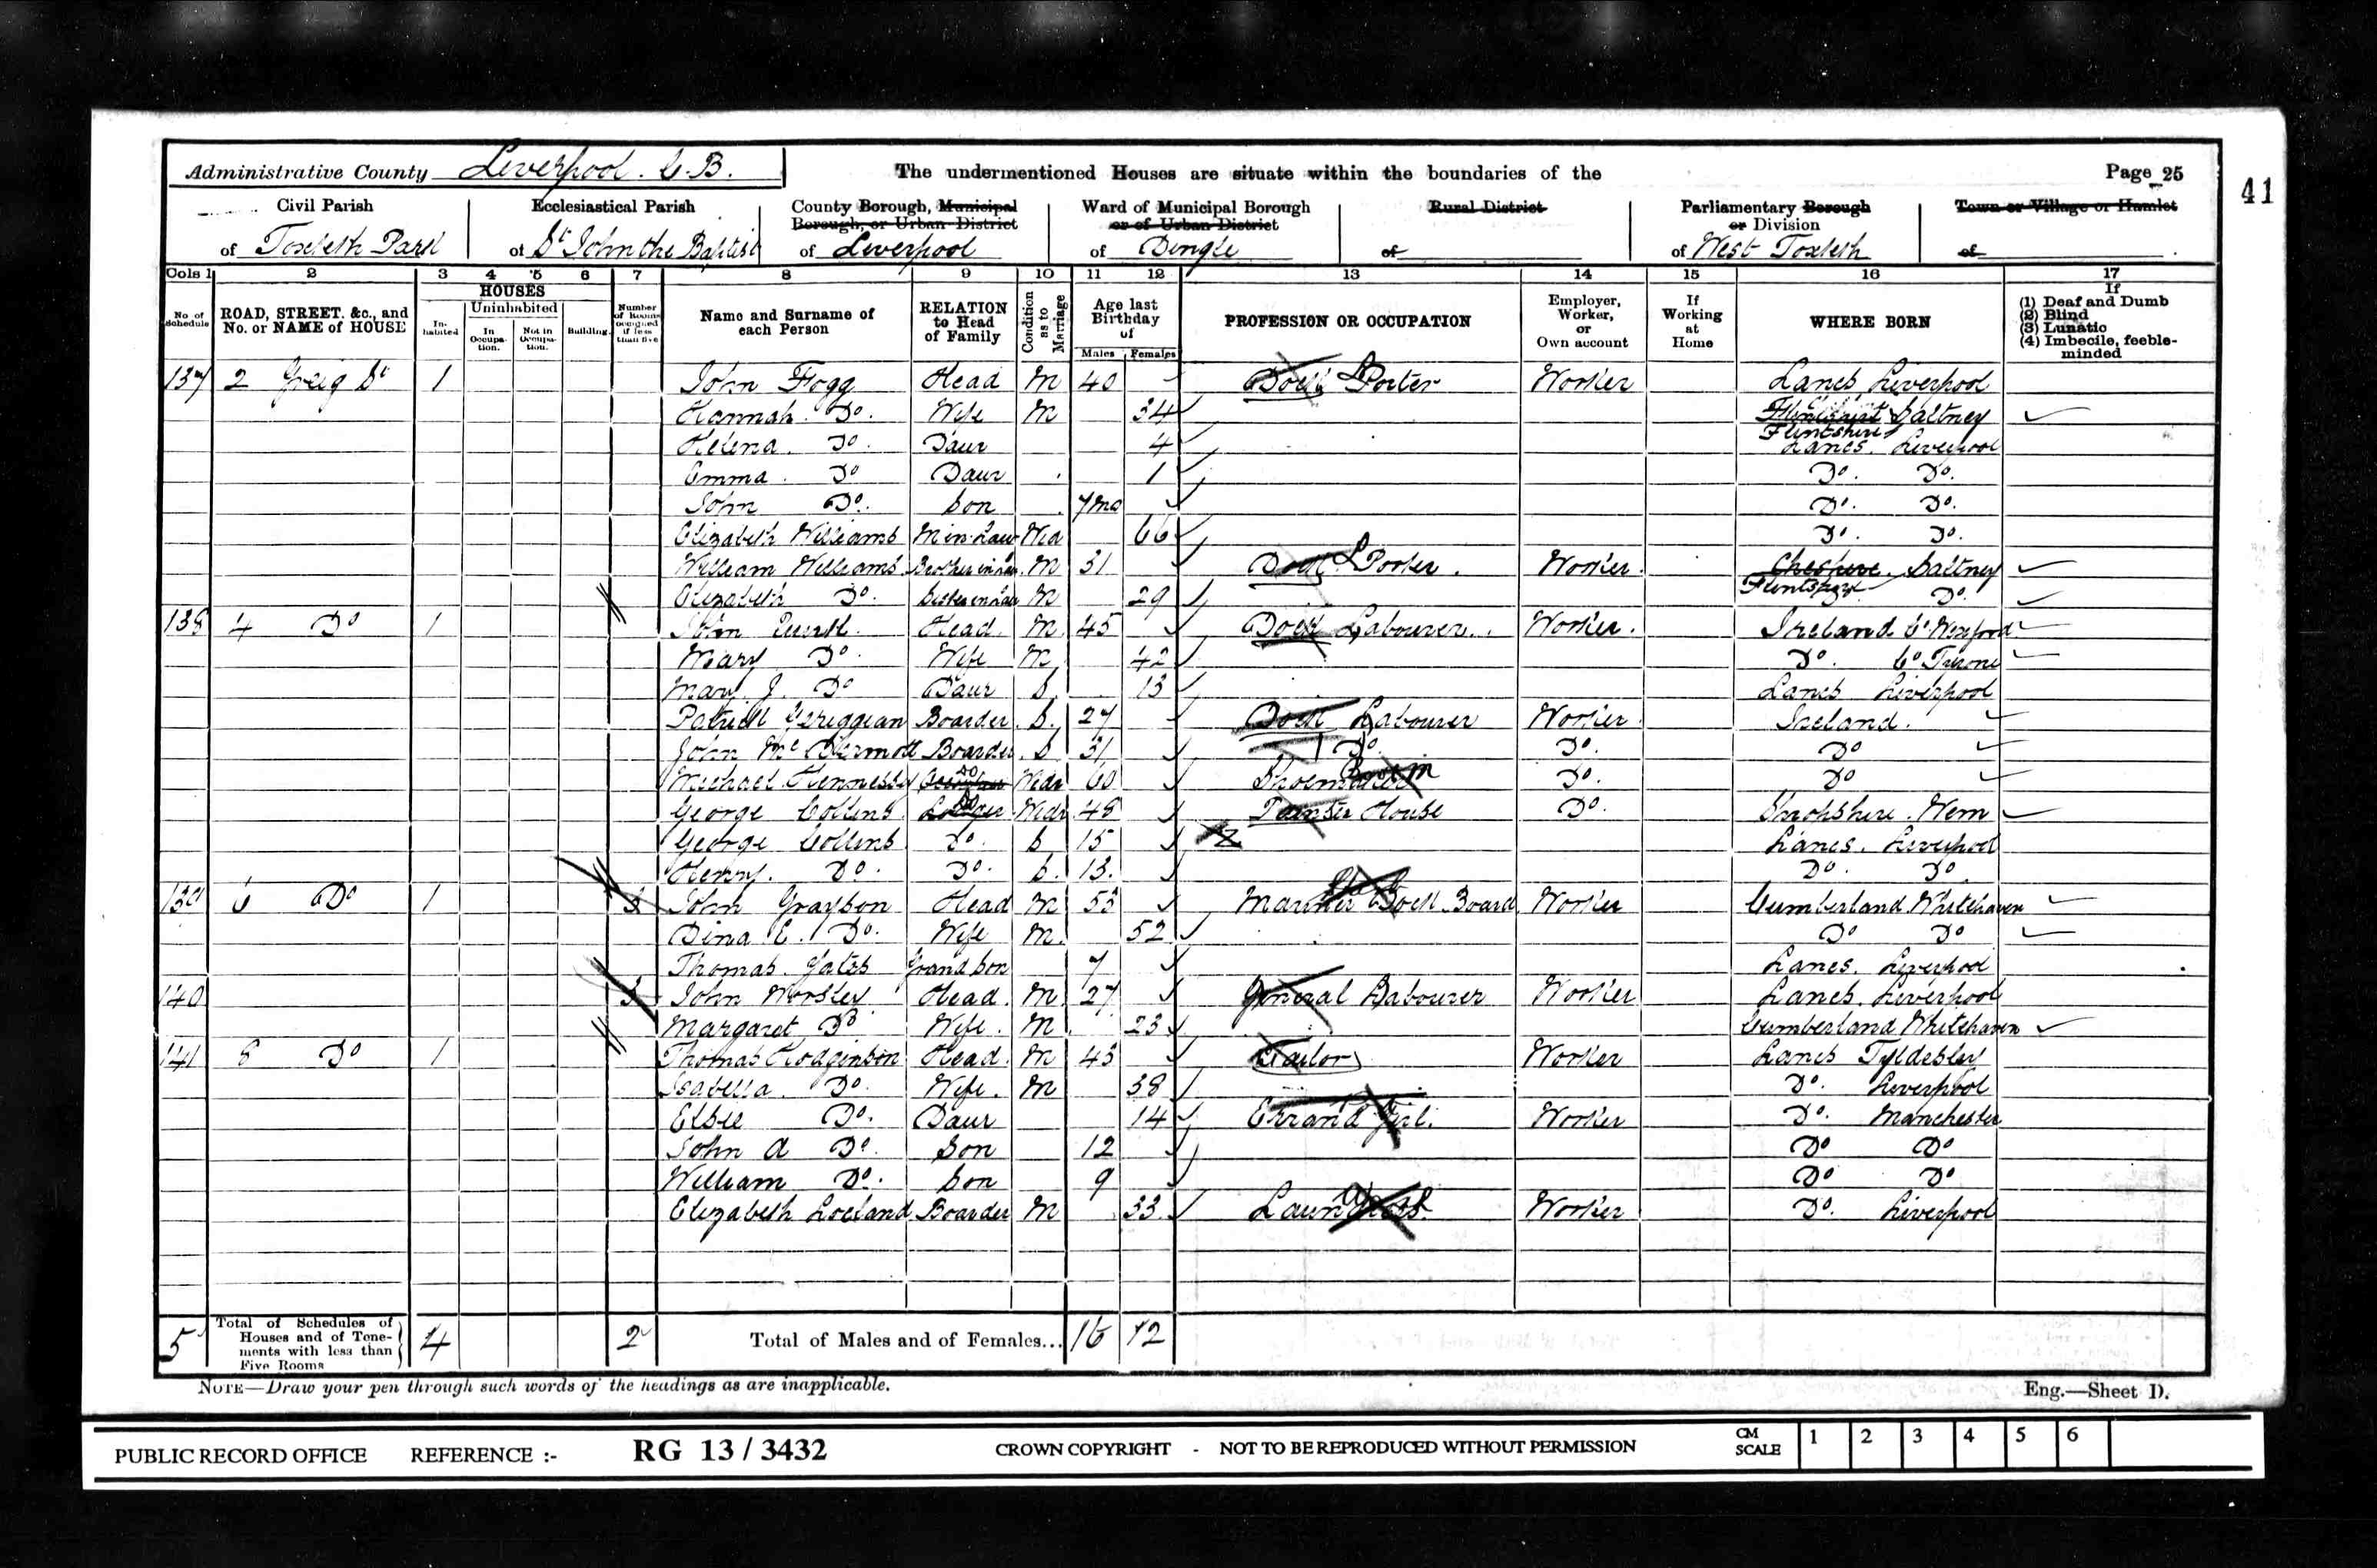 Administrative County Liverpool. C.B. The undermentioned Houses are situate within the boundaries of the Page 25
41
Civil Parish Ecclesiastical Parish County Borough, Municipal Ward of Municipal Borough Rural District Parliamentary Borough Town or Village or Hamlet
Borough, or Urban District or of Urban District or Division
of Toxteth Park of St John the Baptist of Liverpool of Dingle of of West Toxteth of
Cols 1 2 3 4 5 6 7 8 9 10 11 12 13 14 15 16 17
No. of Schedule ROAD, STREET, &c., and No. or NAME of HOUSE HOUSES In-habited Uninhabited In Occupa-tion. Not in Occupa-tion. Building Number of Rooms occupied if less than five Name and Surname of each Person RELATION to Head of Family Condition as to Marriage Age last Birthday of Males Females PROFESSION OR OCCUPATION Employer, Worker, or Own account If Working at Home WHERE BORN If (1) Deaf and Dumb (2) Blind (3) Lunatic (4) Imbecile, feeble-minded
137 2 Greig St 1 John Fogg Head M 40 Dock Porter Worker Lancs Liverpool
Hannah Do. Wife M 34 Flintshire Saltney
Flintshire
Helena Do. Daur 4 Lancs. Liverpool
Emma Do Daur 1 Do. Do.
John Do. Son 7mo Do. Do.
Elizabeth Williams M in Law Wid 66 Do. Do.
William Williams Brother in Law M 31 Dock Porter. Worker. Cheshire. Saltney
Flintshire
Elizabeth Do. Sister in Law M 29 Do. Do.
138 4 Do 1 John Head. M. 45 Dock Labourer. Worker. Ireland Co Wexford
Mary Do. Wife M. 42 Do. Co Tyrone
Mary J. Do Daur S. 13 Lancs Liverpool
Patrick Boarder S. 27 Dock Labourer Worker Ireland.
John Mc Dermott Boarder. S 31 Do. Do. Do
Michael Hennessy Do Widr 60 Shoemaker Do. Do
George Collins Lodger Do Widr 48 House Do. Shropshire. Wem
George Collins Do. S 15 Lancs. Liverpool
Henry. Do. Do. S. 13. Do. Do.
139 6 Do 1 3 John Graybon Head M 53 Mariner Dock Board Worker Cumberland Whitehaven
Dina E. Do. Wife M. 52 Do Do
Thomas Yates Grand Son 7 Lancs. Liverpool
140 3 John Worsley Head. M 27 General Labourer Worker Lancs. Liverpool
Margaret Do Wife. M 23 Cumberland Whitehaven
141 8 Do 1 Thomas Hodginson Head. M 43 Tailor Worker Lancs Tyldesley
Isabella Do. Wife. M 38 Do. Liverpool
Elsie Do. Daur 14 Errand Girl. Worker Do. Manchester
John A Do. Son 12 Do Do
William Do. Son 9 Do Do
Elizabeth Boarder M 33 Laundress Worker Do. Liverpool
5 Total of Schedules of Houses and of Tene-ments with less than Five Rooms 4 2 Total of Males and of Females... 16 12
NOTE—Draw your pen through such words of the headings as are inapplicable. Eng.—Sheet D.
PUBLIC RECORD OFFICE REFERENCE :- RG 13 / 3432 CROWN COPYRIGHT - NOT TO BE REPRODUCED WITHOUT PERMISSION CM SCALE 1 2 3 4 5 6